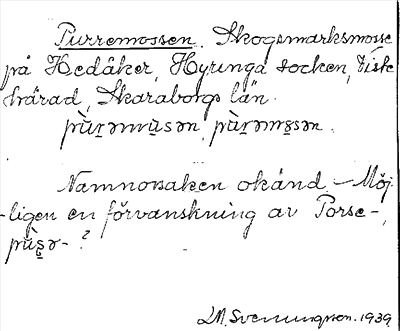 Purremossen. Skogsmarksmosse
på Hedåker, Hyringa socken, Viste
härad, Skaraborgs län.
pùr̲əmu̲sən, pùr̲əmo̲sən.
Namnorsaken okänd. - Möj-
-ligen en förvanskning av Porse-,
pùs̲ə- ?
Svenungsson. 1939.